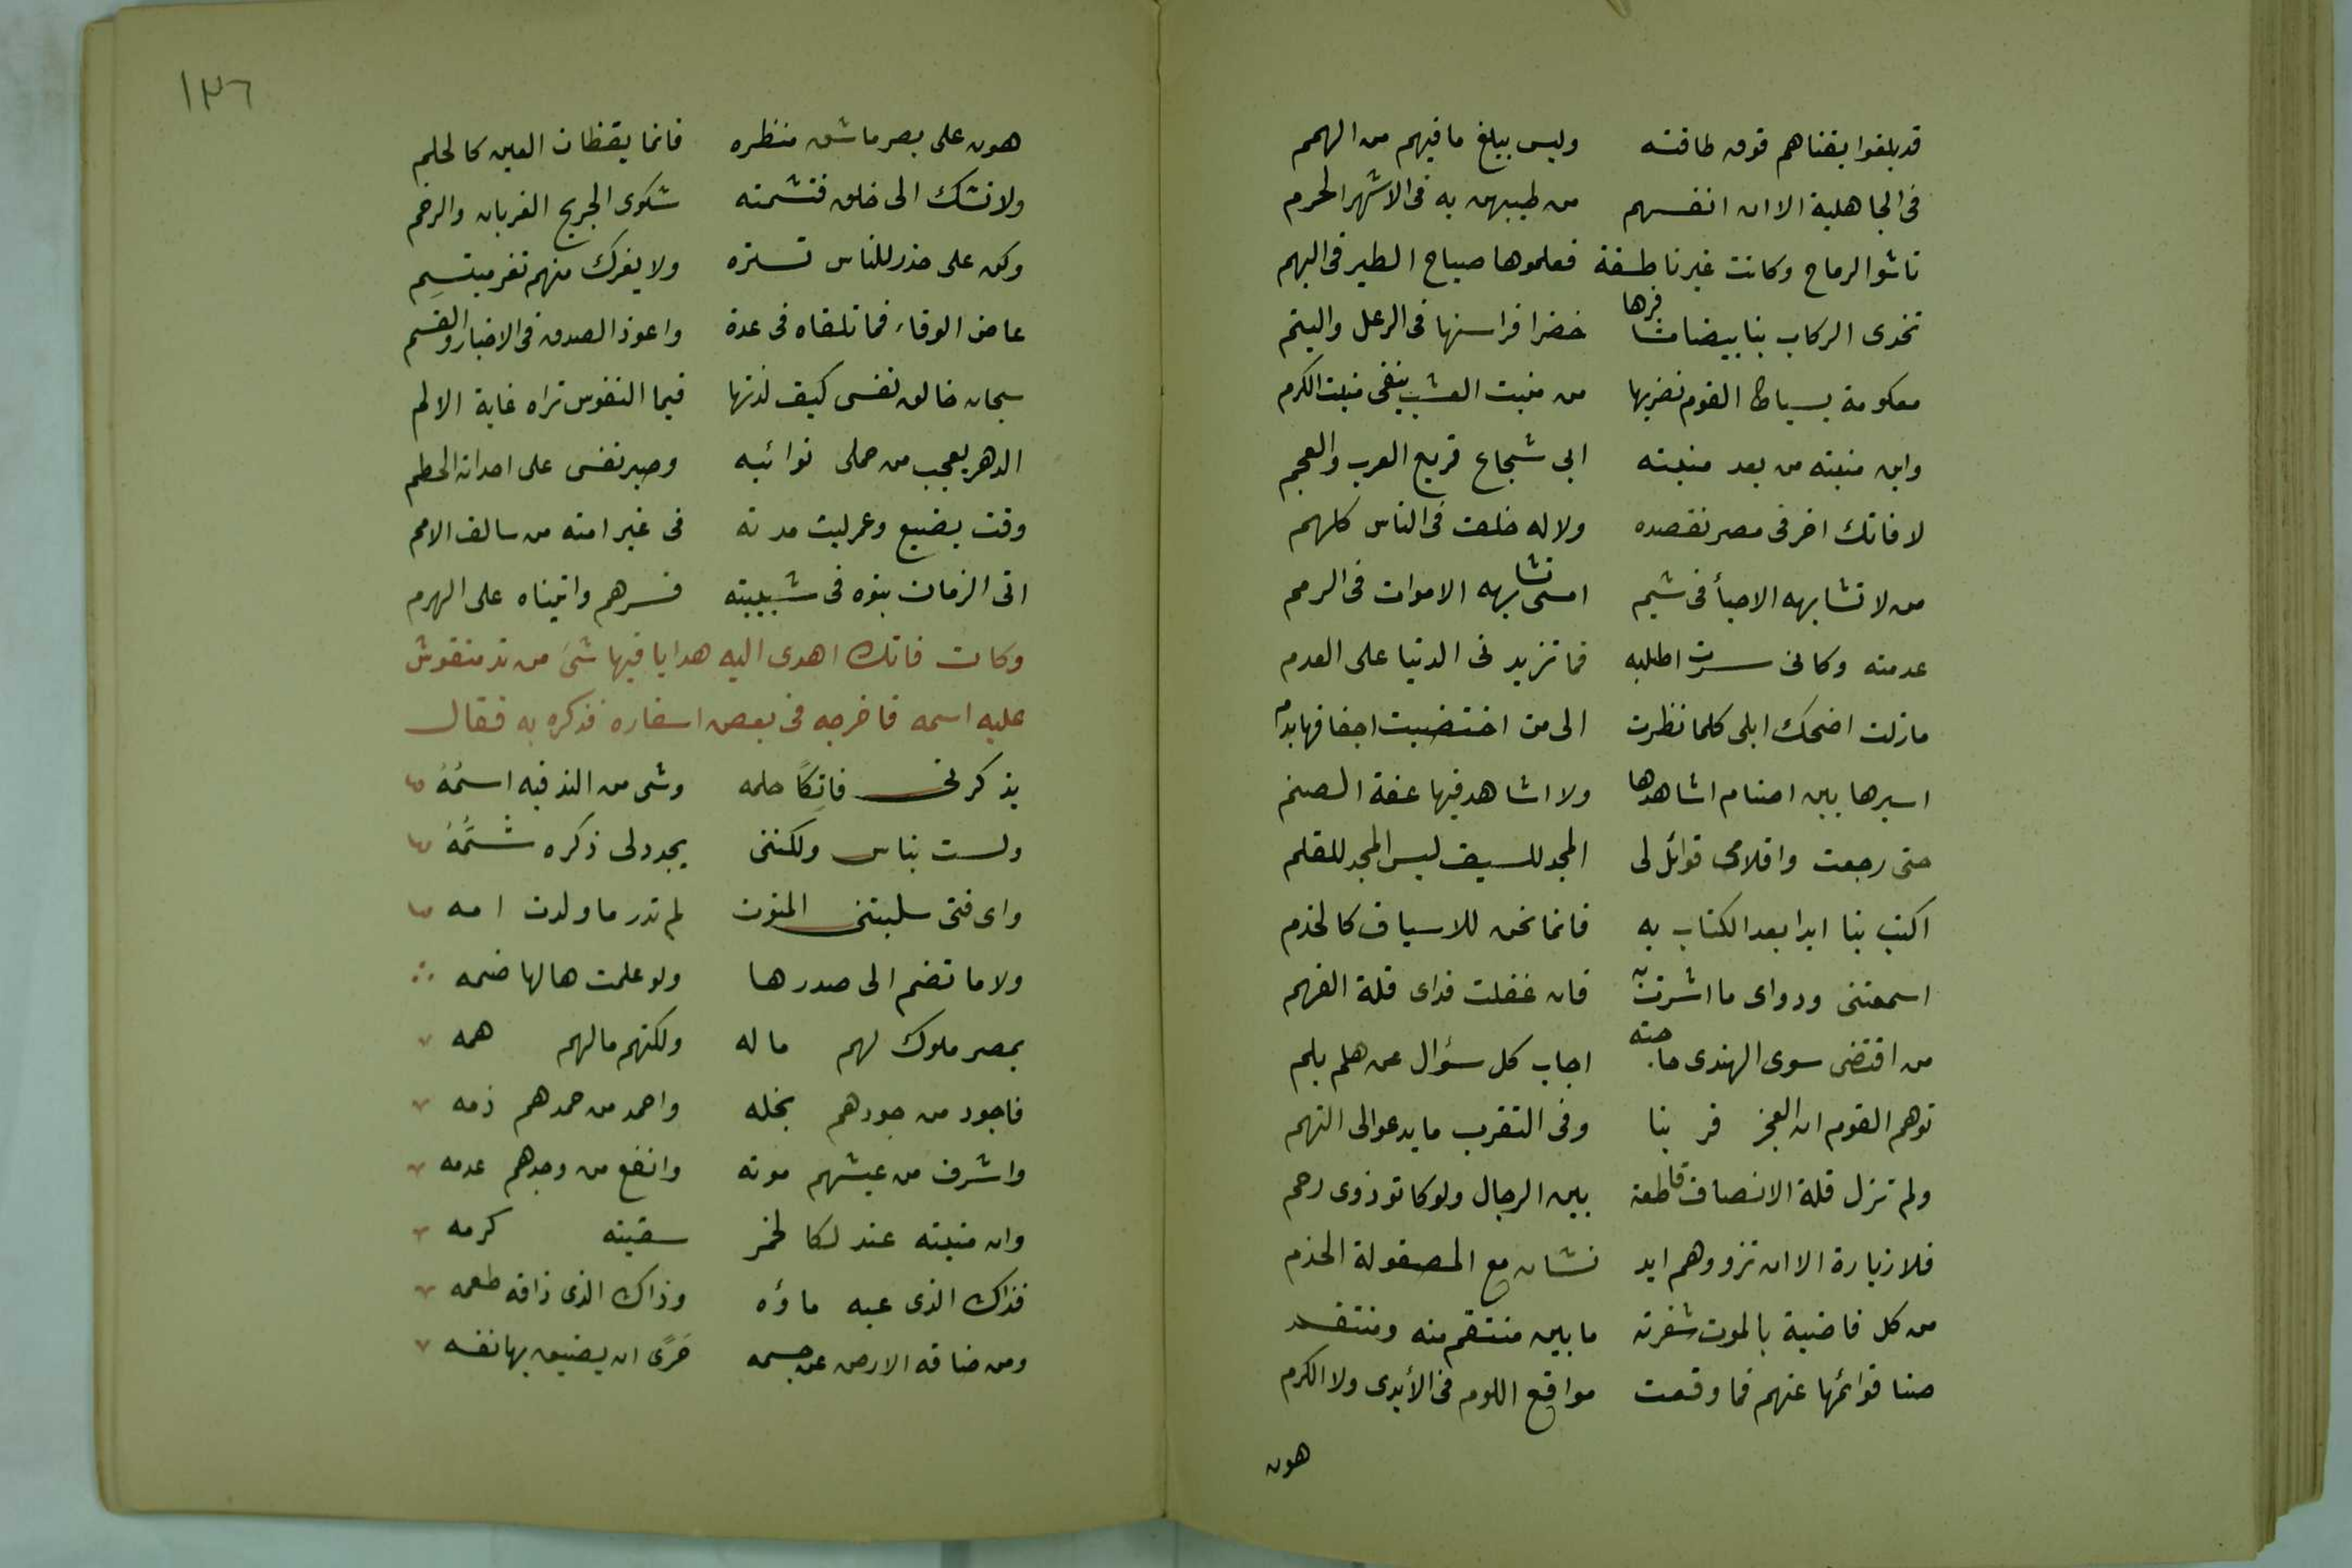 قد بلغوا بقناهم فوق طاقته وليس يبلغ ما فيهم من الهمم
فى الجاهلية الا ان انفسهم من طيبهن به فى الاشهر الحرم
ناشوا الرماح وكانت غير ناطقة فعلموها صياح الطير فى البهم
تخدى الركاب بنا بيضا مشافرها خضرا فراسنها فى الرعل والينم
معكومة بسياط القوم نضربها من منبت العشب ينفى منبت الكرم
واين منبته من بعد منبته ابى شجاع قريع العرب والعجم
لا فاتك اخر فى مصر نقصده ولا له خلف فى الناس كلهم
من لا تشابهه الاحيأ فى شيم امسى تشابهه الاموات فى الرمم
عدمته وكانى سرت اطلبه فما تزيدنى الدنيا على العدم
مازلت اضحك ابلى كلما نظرت الى من اختضبت اخفافها بدم
اسيرها بين اصنام اشاهدها ولا اشاهد فيها عفة الصنم
حتى رجعت واقلامى قوائل لى المجد للسيف ليس المجد للقلم
اكتب بنا ابدا بعد الكتاب به فانما نحن للاسياف كالخدم
اسمعتنى ودواى ما اشرت به فان غفلت فداى قلة الفهم
من اقتضى سوى الهندى حاجته اجاب كل سؤال عن هل بلم
توهم القوم ان العجز قربنا وفى التقرب ما يدعو الى التهم
ولم تزل قلة الانصاف قاطعة بين الرجال ولو كانو ذوى رحم
فلا زيارة الا ان تزورهم ايد نشان مع المصقولة الخذم
من كل قاضية بالموت شفرته ما بين منتقم منه ومنتقم
صنا قوائمها عنهم فما وقعت مواقع اللوم فى الأيدى ولا الكرم
هون
١٣٦
هون على بصر ما شق منظره فانما يقظات العين كالحلم
ولا تشك الى خلق فتشمته شكوى الجريح الغربان والرخم
وكن على حذر للناس تستره ولا يغرك منهم ثغر مبتسم
غاض الوفاء فما تلقاه فى عدة واعوذ الصدق فى الاخبار والقسم
سبحان خالق نفسى كيف لذتها فيما النفوس تراه غاية الالم
الدهر يعجب من حملى نوائبه وصبر نفسى على احداثه الحطم
وقت يضيع وعمر ليت مدته فى غير امته من سالف الامم
اتى الزمان بنوه فى شبيبته فسرهم واتيناه على الهرم
وكان فاتك اهدى اليه هدايا فيها شئ من ند منقوش
عليه اسمه فاخرجه فى بعض اسفاره فذكره به فقال
يذكرنى فاتكًا حلمه وشى من الند فيه اسمُهُ
ولست بناس ولكننى يجدد لى ذكره شَمُّهُ
واى فتى سلبتنى المنون لم تدر ما ولدت امه
ولا ما تضم الى صدرها ولو علمت هالها ضمه
بمصر ملوك لهم ماله ولكنهم مالهم همه
فاجود من جودهم بخله واحمد من حمدهم ذمه
واشرف من عيشهم موته وانفع من وجدهم عدمه
وان منيته عنده لكالخمر سقيته كرمه
فذاك الذى عبه ماؤه وذاك الذى ذاقه طعمه
ومن ضاقه الارض عن جسمه حَرًى ان يضيق بها نفسه